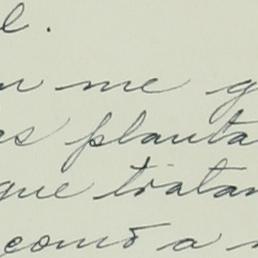 e.
n me g
as planta
que tratan
como a